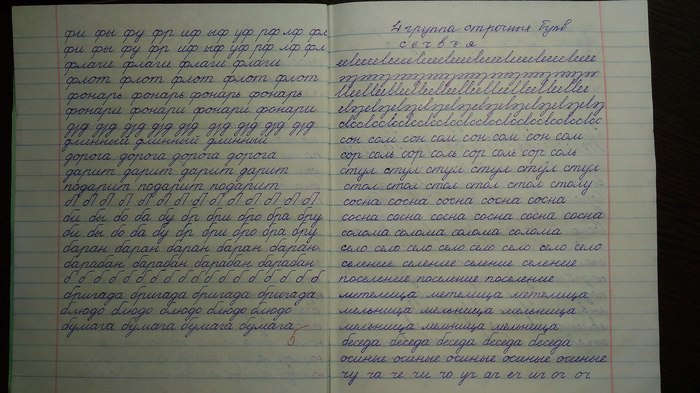 фи фы фу фр иф ыф уф рф лф фл
фи фы фу фр иф ыф уф рф лф фл
флаги флаги флаги флаги
флот флот флот флот флот
фонарь фонарь фонарь фонарь
фонари фонари фонари фонари
длинный длинный длинный
дорога дорога дорога дорога
дарит дарит дарит дарит
подарит подарит подарит
би бы бо ба бу бр бри бро бра бру
би бы бо ба бу бр бри бро бра бру
баран баран баран баран баран
барабан барабан барабан барабан
б б б б б б б б б б б б б
бригада бригада бригада бригада
блюдо блюдо блюдо блюдо блюдо
бумага бумага бумага бумага
5
4 группа строчных букв
с е ч ъ я
сон сом сон сом сон сом сон сом
сор соль сор соль сор соль
стул стул стул стул стул стул
стол стол стол стол столу
сосна сосна сосна сосна сосна
сосна сосна сосна сосна сосна сосна
солома солома солома солома
село село село село село село село
селение селение селение селение
поселение поселение поселение
метелица метелица метелица
мельница мельница мельница
мельница мельница мельница
беседа беседа беседа беседа беседа
осиные осиные осиные осиные осиные
чу ча че чи чо уч ач еч ич оч оч